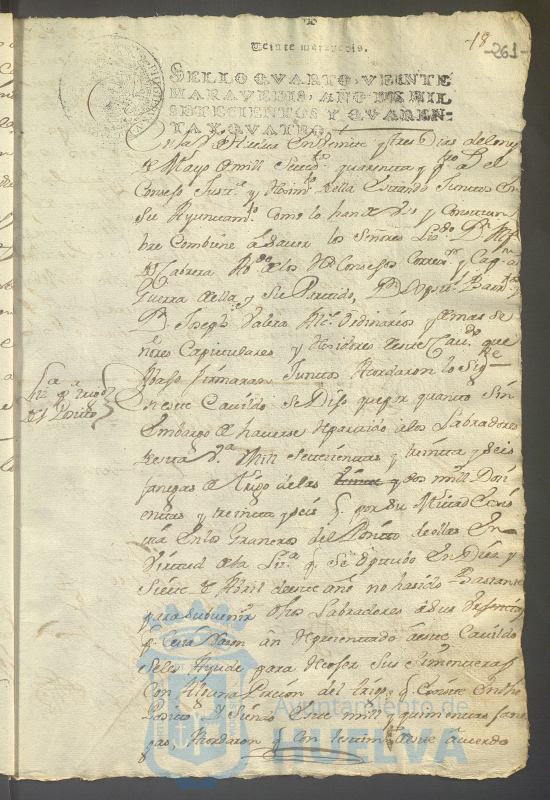 18
-261-
Veinte maravedis.
SELLO QVARTO, VEINTE
MARAVEDIS, AÑO DE MIL
SETECIENTOS Y QVAREN-
TA Y QVATRO.
En la Vª de Huelva en Veinte y tres Dias del mes
de Mayo de mill Settez.ºs quarenta y q.tro El
Consejo Just.ª y Rexim.to della Estando Juntos En
Su Ayuntam.to Como lo han de Vso y Costum
bre Combiene a Saver los Señores Liz.do D.n
de Cabrera Abo.do de los R.s Consejos Correx.or y Cap.n a
Guerra della y Su Partido,
D.n Joseph Valera Alc.s Ordinarios y Demas Se
ñores Capitulares y Rexidores deste Cav.do que
Abajo firmaran Juntos Acordaron lo Sig.te
En este Cavildo Se Dijo que por quanto Sin
Embargo de haverse repartido a los Labradores
desta V.ª Mill Settecientas y treinta y seis
fanegas de trigo de las y dos mill Dosci
entas y treinta y seis f. por Su Mitad Exis
tia En los Graneros del Posito della En
Virtud de la Liz.ª q. Se En Dies y
Siete de Abril deste año no ha sido Bastante
para subvenir dhos Labradores a sus
q. Esta Razon an representado a este Cavildo
Se les Ayude para recojer Sus Simenteras
Con Alguna Porcion del trigo q. Existe En dho
Posito y Siendo Este mill y quinientas fane
gas, Acordaron y Con
Liz.ª p.ª trigo
del Posito
Ayuntamiento de
HUELVA